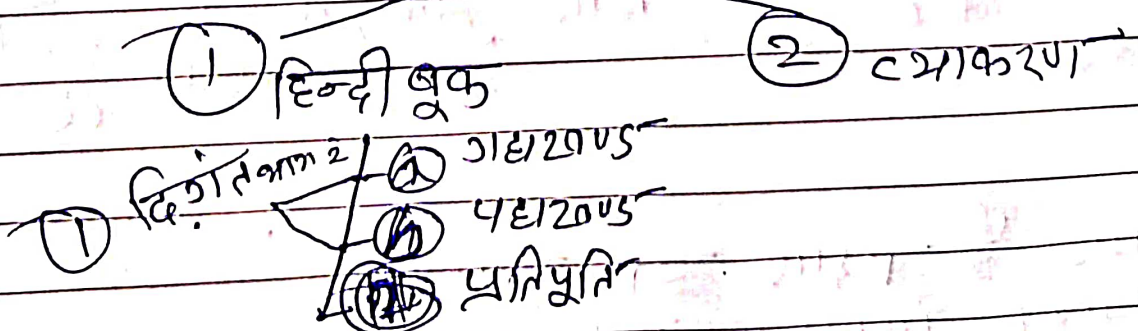 ① हिन्दी बूक ② व्याकरण
① दिगंत भाग 2 गद्यखण्ड
पद्यखण्ड
प्रतिपूर्ति